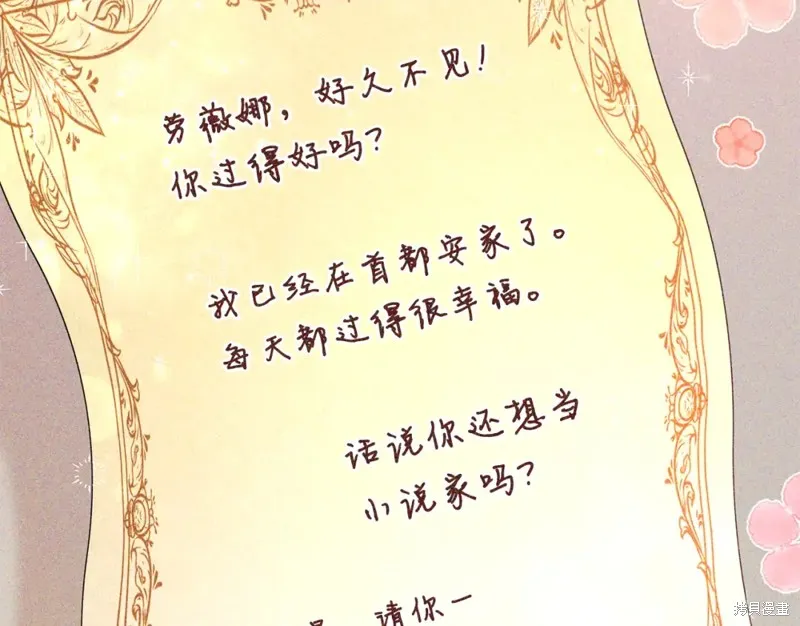 劳薇娜，好久不见！
你过得好吗？
我已经在首都安家了。
每天都过得很幸福。
话说你还想当
小说家吗？
请你一
拷貝漫畫